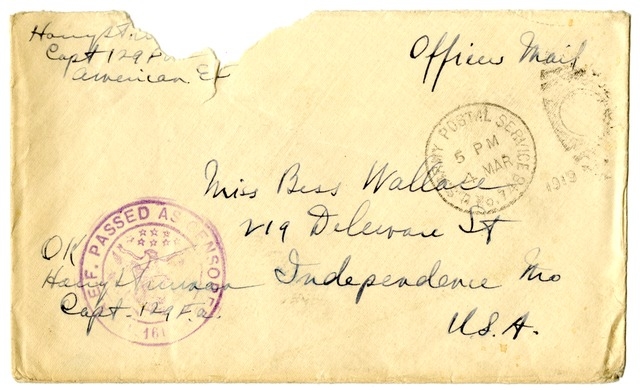 Harry S.
Capt 129 F
American Ex
Officers Mail
ARMY POSTAL SERVICE
5 PM
MAR
1919
Miss Bess Wallace
219 Deleware St
Independence Mo
U.S.A.
A.E.F. PASSED AS CENSORED
161
OK
Harry S Truman
Capt. 129 F.a.